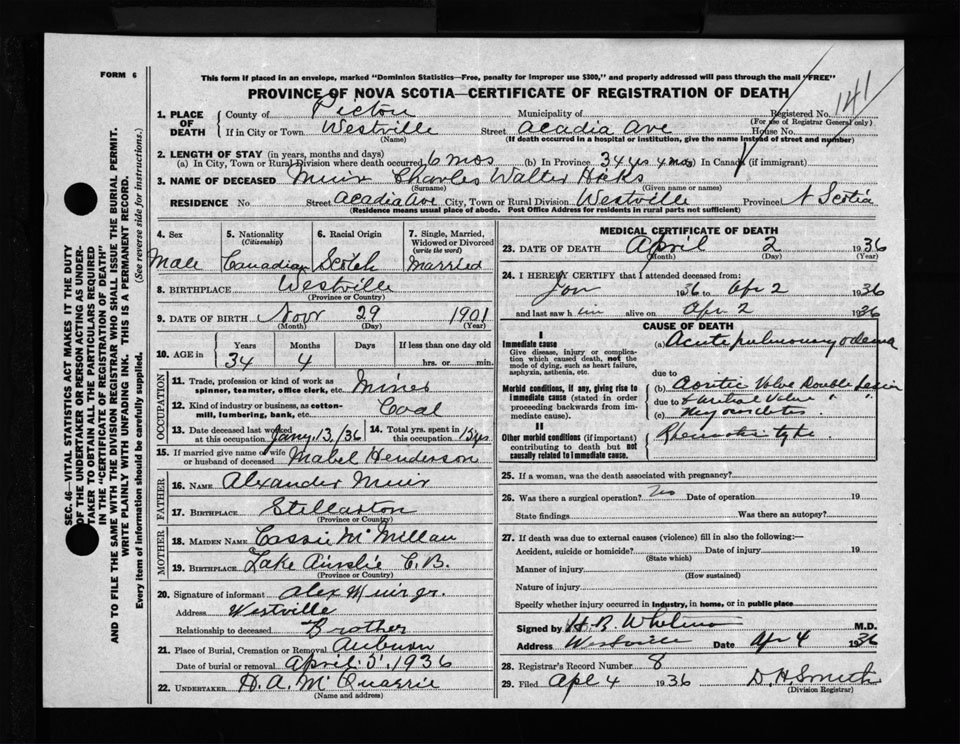 FORM 6
This form if placed in an envelope, marked "Dominion Statistics—Free, penalty for improper use $300," and properly addressed will pass through the mail "FREE"
PROVINCE OF NOVA SCOTIA—CERTIFICATE OF REGISTRATION OF DEATH
141
SEC. 46—VITAL STATISTICS ACT MAKES IT THE DUTY
OF THE UNDERTAKER OR PERSON ACTING AS UNDER-
TAKER TO OBTAIN ALL THE PARTICULARS REQUIRED
IN THE "CERTIFICATE OF REGISTRATION OF DEATH"
AND TO FILE THE SAME WITH THE DIVISION REGISTRAR WHO SHALL ISSUE THE BURIAL PERMIT.
WRITE PLAINLY WITH UNFADING INK. THIS IS A PERMANENT RECORD.
Every item of information should be carefully supplied. (See reverse side for instructions.)
1. PLACE OF DEATH
County of Pictou Municipality of Registered No.
(For use of Registrar General only)
If in City or Town Westville Street Acadia Ave House No.
(Name) (If death occurred in a hospital or institution, give the name instead of street and number)
2. LENGTH OF STAY (in years, months and days)
(a) In City, Town or Rural Division where death occurred 6 mos (b) In Province 34 yrs 4 mos In Canada (if immigrant)
3. NAME OF DECEASED Muir Charles Walter Hicks
(Surname) (Given name or names)
RESIDENCE No. Street Acadia Ave City, Town or Rural Division Westville Province N Scotia
(Residence means usual place of abode. Post Office Address for residents in rural parts not sufficient)
4. Sex 5. Nationality (Citizenship) 6. Racial Origin 7. Single, Married, Widowed or Divorced (write the word)
Male Canadian Scotch Married
8. BIRTHPLACE Westville
(Province or Country)
9. DATE OF BIRTH Novr 29 1901
(Month) (Day) (Year)
10. AGE in Years Months Days If less than one day old
34 4 hrs. or min.
OCCUPATION
11. Trade, profession or kind of work as
spinner, teamster, office clerk, etc. Miner
12. Kind of industry or business, as cotton-
mill, lumbering, bank, etc. Coal
13. Date deceased last worked
at this occupation Jany 13, /36
14. Total yrs. spent in
this occupation 15 yrs.
15. If married give name of wife
or husband of deceased Mabel Henderson
FATHER
16. NAME Alexander Muir
17. BIRTHPLACE Stellarton
(Province or Country)
MOTHER
18. MAIDEN NAME Cassie McMillan
19. BIRTHPLACE Lake Ainslie C.B.
(Province or Country)
20. Signature of informant Alex Muir jr.
Address Westville
Relationship to deceased Brother
21. Place of Burial, Cremation or Removal Auburn
Date of burial or removal April 5, 1936
22. UNDERTAKER H. A. McQuarrie
(Name and address)
MEDICAL CERTIFICATE OF DEATH
23. DATE OF DEATH April 2 1936
(Month) (Day)
24. I HEREBY CERTIFY that I attended deceased from:
Jan 1936 to Apr 2 1936
and last saw him alive on Apr 2 1936
CAUSE OF DEATH
I
Immediate cause
Give disease, injury or complica-
tion which caused death, not the
mode of dying, such as heart failure,
asphyxia, asthenia, etc.
(a) Acute pulmonary odema
due to
Morbid conditions, if any, giving rise to
immediate cause (stated in order
proceeding backwards from im-
mediate cause).
(b) Aortic Valve Double Lesion
due to & Mitral Valve " "
(c) Myocarditis
II
Other morbid conditions (if important)
contributing to death but not
causally related to immediate cause.
Rheumatic type
25. If a woman, was the death associated with pregnancy?
26. Was there a surgical operation? Date of operation 19
State findings Was there an autopsy?
27. If death was due to external causes (violence) fill in also the following:—
Accident, suicide or homicide? Date of injury 19
(State which)
Manner of injury
(How sustained)
Nature of injury
Specify whether injury occurred in industry, in home, or in public place
Signed by H. B. M.D.
Address Westville Date Apr 4 1936
28. Registrar's Record Number 8
29. Filed Apl 4 1936 D. H. Smith
(Division Registrar)